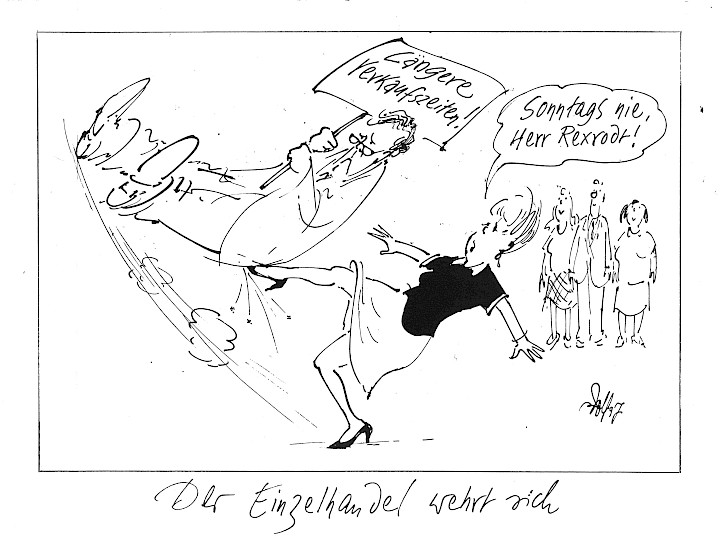 Längere
Verkaufszeiten!
Sonntags nie,
Herr Rexrodt!
Der Einzelhandel wehrt sich